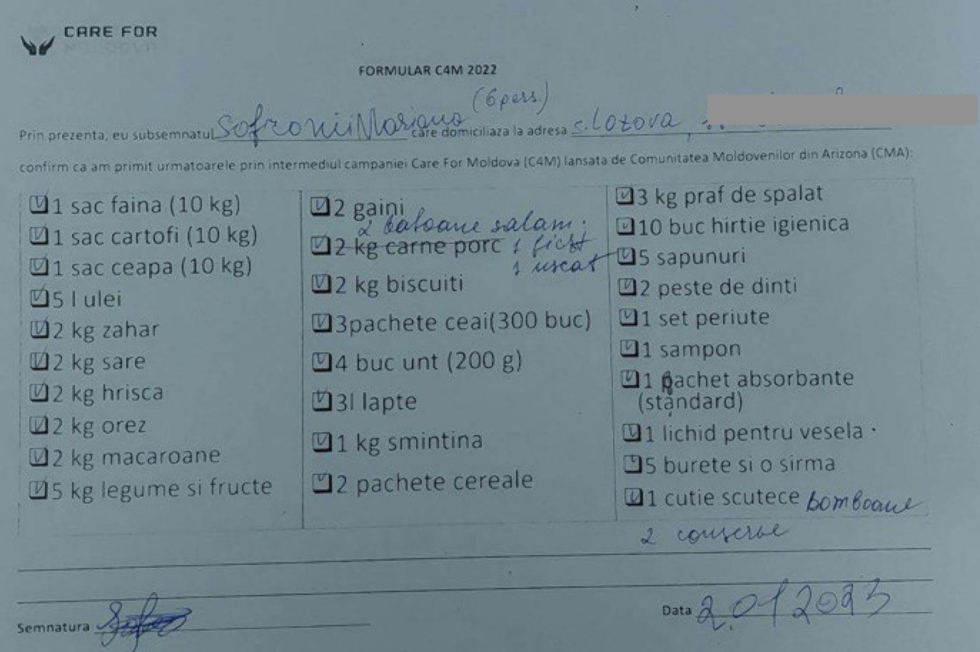 CARE FOR
MOLDOVA
FORMULAR C4M 2022
(6 pers.)
Prin prezenta, eu subsemnatul Sofronii Mariana care domiciliaza la adresa s. Lozova,
confirm ca am primit urmatoarele prin intermediul campaniei Care For Moldova (C4M) lansata de Comunitatea Moldovenilor din Arizona (CMA):
1 sac faina (10 kg)
1 sac cartofi (10 kg)
1 sac ceapa (10 kg)
5 l ulei
2 kg zahar
2 kg sare
2 kg hrisca
2 kg orez
2 kg macaroane
5 kg legume si fructe
2 gaini
2 batoane salam:
2 kg carne porc 1 fiert
1 uscat
2 kg biscuiti
3pachete ceai(300 buc)
4 buc unt (200 g)
3l lapte
1 kg smintina
2 pachete cereale
3 kg praf de spalat
10 buc hirtie igienica
5 sapunuri
2 peste de dinti
1 set periute
1 sampon
1 pachet absorbante
(standard)
1 lichid pentru vesela
5 burete si o sirma
1 cutie scutece bomboane
2 conserve
Semnatura
Data 2.01 2023